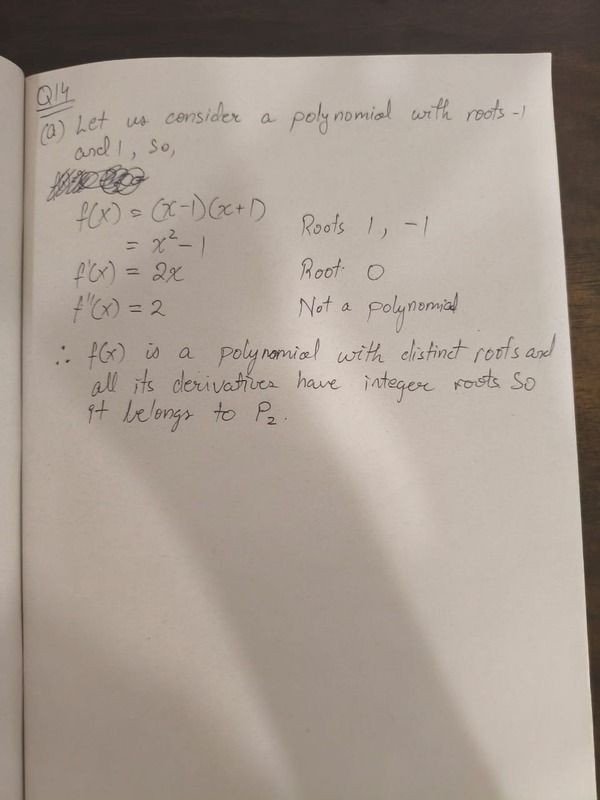 Q14
(a) Let us consider a polynomial with roots -1
and 1, So,
f(x) = (x-1)(x+1) Roots 1, -1
= x² - 1
f'(x) = 2x Root 0
f''(x) = 2 Not a polynomial
∴ f(x) is a polynomial with distinct roots and
all its derivatives have integer roots So
it belongs to P₂.